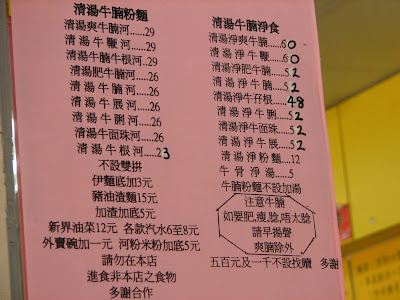 清湯牛腩粉麵
清湯爽牛腩河......29
清湯牛鞭河......29
清湯牛腩牛根河...29
清湯肥牛腩河......26
清湯牛腩河......26
清湯牛展河......26
清湯牛脷河......26
清湯牛面珠河......26
清湯牛根河.....23
不設雙拼
伊麵底加3元
豬油渣麵15元
加渣加底5元
新界油菜12元 各款汽水6至8元
外賣碗加一元 河粉米粉加底5元
請勿在本店
進食非本店之食物
多謝合作
清湯牛腩淨食
清湯淨爽牛腩.....60
清湯淨牛鞭.....60
清湯淨肥牛腩.....52
清湯淨牛腩.....52
清湯淨牛孖根.....48
清湯淨牛脷.....52
清湯淨牛面珠.....52
清湯淨牛展.....52
清湯淨粉麵.....12
牛骨淨湯.....5
牛腩粉麵不設加湯
注意牛腩
如要肥,瘦,腍,唔太腍
請早揚聲
爽腩除外
五百元及一千不設找贖 多謝